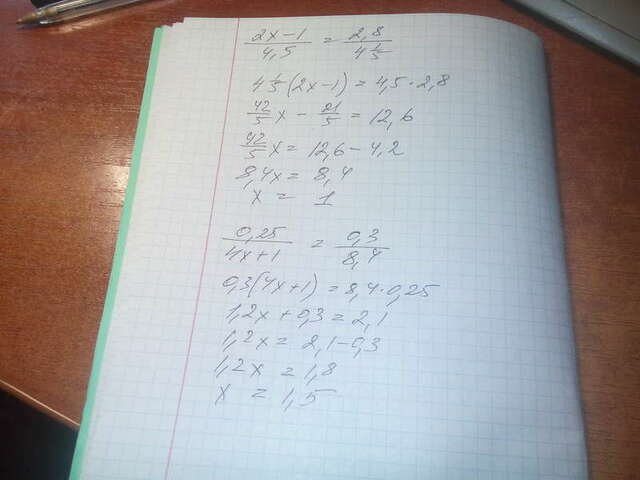 2x-1/4,5 = 2,8/4 1/5
4 1/5 (2x-1) = 4,5 · 2,8
42/5 x - 21/5 = 12,6
42/5 x = 12,6 - 4,2
8,4x = 8,4
x = 1
0,25/4x+1 = 0,3/8,4
0,3(4x+1) = 8,4·0,25
1,2x + 0,3 = 2,1
1,2x = 2,1-0,3
1,2x = 1,8
x = 1,5